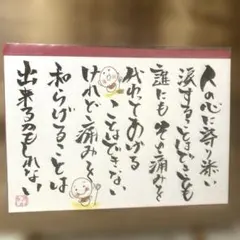 人の心に寄り添い
涙することはできても
誰にもその痛みを
代わってあげる
ことはできない
けれど痛みを
和らげることは
出来るかもしれない